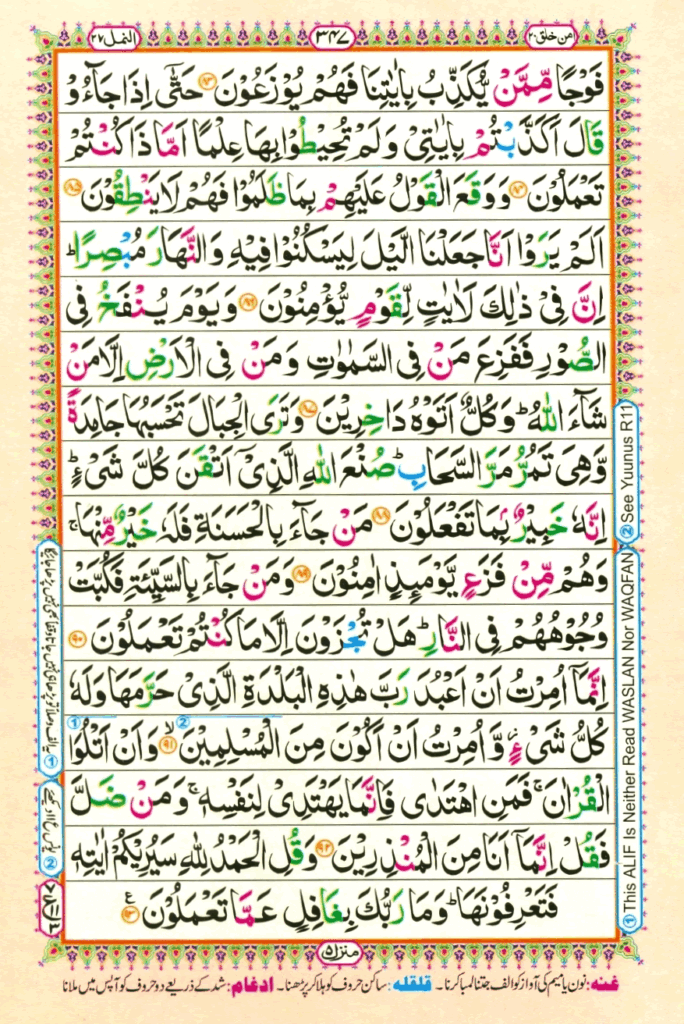 النمل ٢٧
٣٤٧
امن خلق ٢٠
فَوْجًا مِّمَّنْ يُّكَذِّبُ بِاٰيٰتِنَا فَهُمْ يُوْزَعُوْنَ ﴿٨٣﴾ حَتّٰۤى اِذَا جَآءُوْ
قَالَ اَكَذَّبْتُمْ بِاٰيٰتِيْ وَلَمْ تُحِيْطُوْا بِهَا عِلْمًا اَمَّا ذَا كُنْتُمْ
تَعْمَلُوْنَ ﴿٨٤﴾ وَوَقَعَ الْقَوْلُ عَلَيْهِمْ بِمَا ظَلَمُوْا فَهُمْ لَا يَنْطِقُوْنَ ﴿٨٥﴾
اَلَمْ يَرَوْا اَنَّا جَعَلْنَا الَّيْلَ لِيَسْكُنُوْا فِيْهِ وَالنَّهَارَ مُبْصِرًا ؕ
اِنَّ فِيْ ذٰلِكَ لَاٰيٰتٍ لِّقَوْمٍ يُّؤْمِنُوْنَ ﴿٨٦﴾ وَيَوْمَ يُنْفَخُ فِي
الصُّوْرِ فَفَزِعَ مَنْ فِي السَّمٰوٰتِ وَمَنْ فِي الْاَرْضِ اِلَّا مَنْ
شَآءَ اللّٰهُ ؕ وَكُلٌّ اَتَوْهُ دَاخِرِيْنَ ﴿٨٧﴾ وَتَرَى الْجِبَالَ تَحْسَبُهَا جَامِدَةً
وَّهِيَ تَمُرُّ مَرَّ السَّحَابِ ؕ صُنْعَ اللّٰهِ الَّذِيْۤ اَتْقَنَ كُلَّ شَيْءٍ ؕ
اِنَّهٗ خَبِيْرٌۢ بِمَا تَفْعَلُوْنَ ﴿٨٨﴾ مَنْ جَآءَ بِالْحَسَنَةِ فَلَهٗ خَيْرٌ مِّنْهَا ۚ
وَهُمْ مِّنْ فَزَعٍ يَّوْمَىِٕذٍ اٰمِنُوْنَ ﴿٨٩﴾ وَمَنْ جَآءَ بِالسَّيِّئَةِ فَكُبَّتْ
وُجُوْهُهُمْ فِي النَّارِ ؕ هَلْ تُجْزَوْنَ اِلَّا مَا كُنْتُمْ تَعْمَلُوْنَ ﴿٩٠﴾
اِنَّمَاۤ اُمِرْتُ اَنْ اَعْبُدَ رَبَّ هٰذِهِ الْبَلْدَةِ الَّذِيْ حَرَّمَهَا وَلَهٗ
كُلُّ شَيْءٍ ؗ وَّاُمِرْتُ اَنْ اَكُوْنَ مِنَ الْمُسْلِمِيْنَ ﴿٩١﴾ ۙ وَاَنْ اَتْلُوَا
الْقُرْاٰنَ ۚ فَمَنِ اهْتَدٰى فَاِنَّمَا يَهْتَدِيْ لِنَفْسِهٖ ۚ وَمَنْ ضَلَّ
فَقُلْ اِنَّمَاۤ اَنَا مِنَ الْمُنْذِرِيْنَ ﴿٩٢﴾ وَقُلِ الْحَمْدُ لِلّٰهِ سَيُرِيْكُمْ اٰيٰتِهٖ
فَتَعْرِفُوْنَهَا ؕ وَمَا رَبُّكَ بِغَافِلٍ عَمَّا تَعْمَلُوْنَ ﴿٩٣﴾ ع
① This ALIF Is Neither Read WASLAN Nor WAQFAN ② See Yuunus R11
منزل ٥
غنه: نون یا میم کی آواز کو الف جتنا لمبا کرنا۔ قلقله: ساکن حروف کو ہلا کر پڑھنا۔ ادغام: شد کے ذریعے دو حروف کو آپس میں ملانا